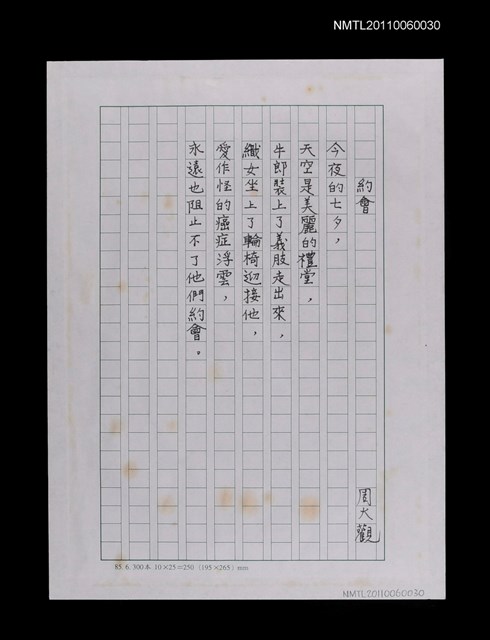 NMTL20110060030
約會
周大觀
今夜的七夕，
天空是美麗的禮堂，
牛郎裝上了義肢走出來，
織女坐上了輪椅迎接他，
愛作怪的癌症浮雲，
永遠也阻止不了他們約會。
85. 6. 300本 10×25=250（195×265）mm
NMTL20110060030